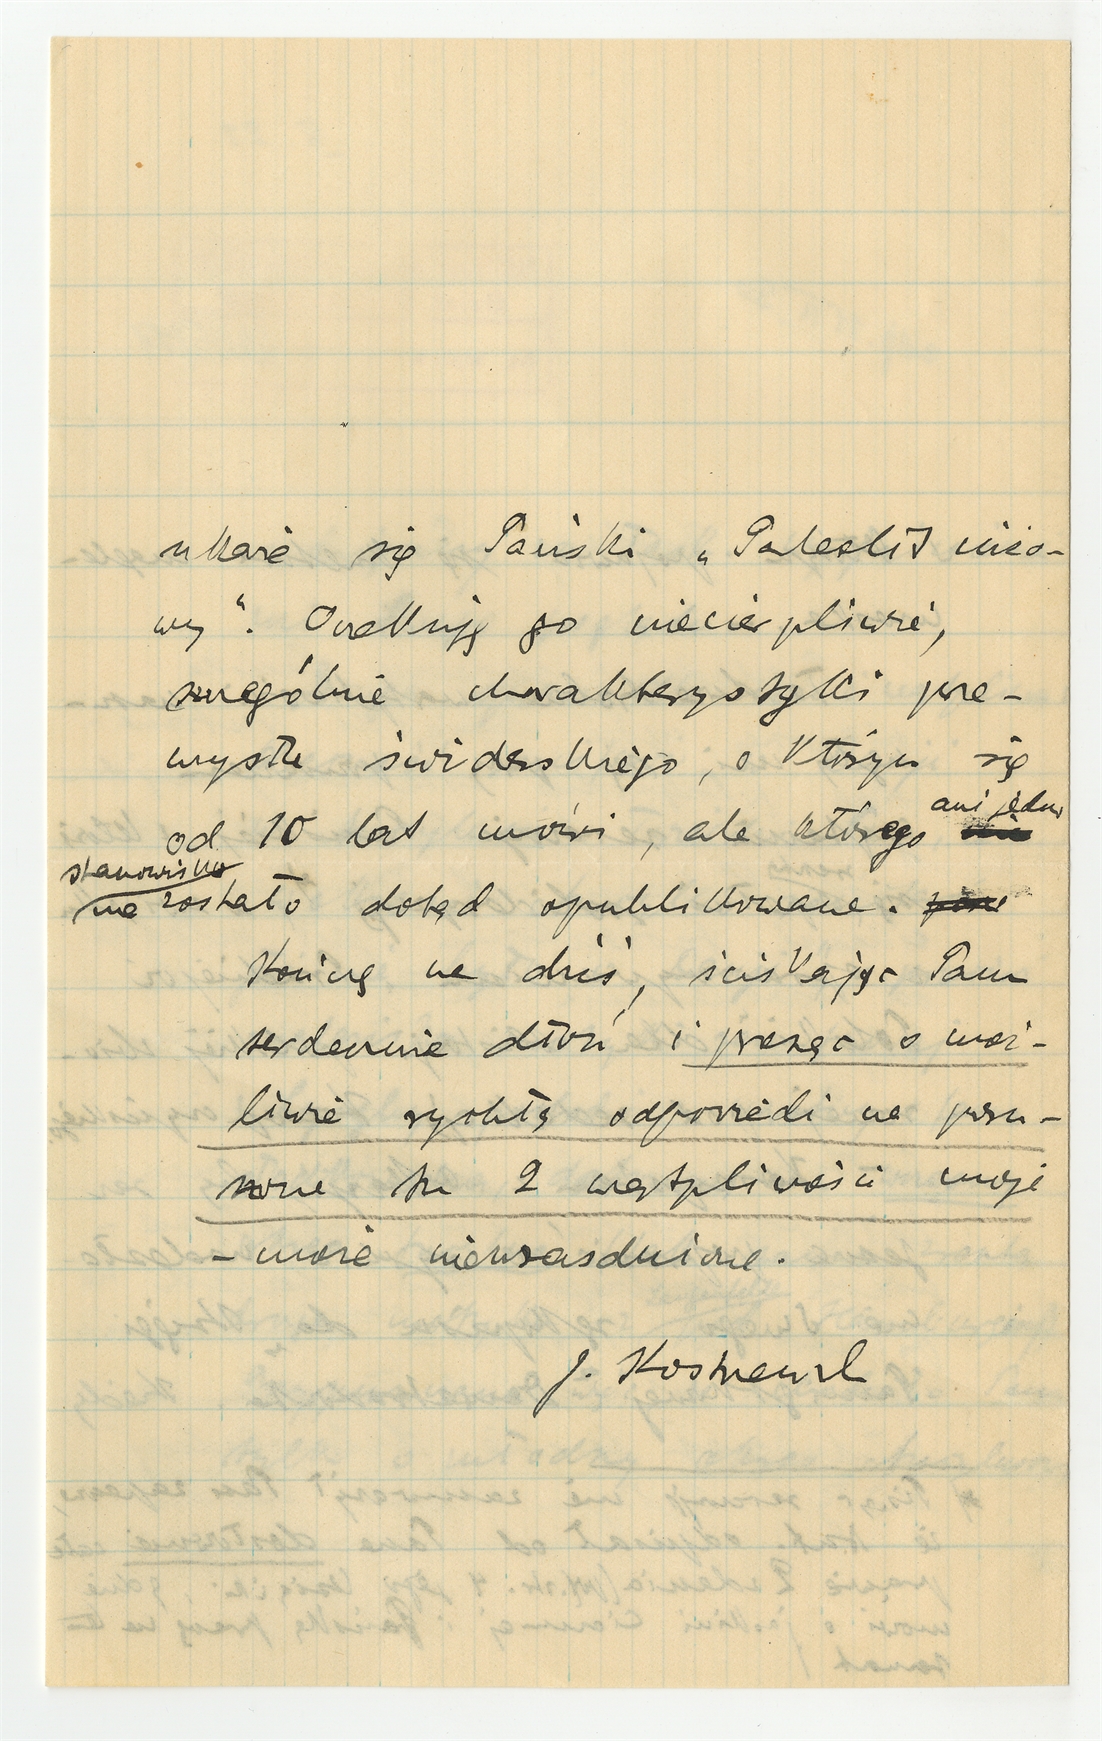 ukaże się Pański „Paleolit niżo-
wy". Oczekuję go niecierpliwie,
szczególnie charakterystyki prze-
mysłu świderskiego, o którym się
od 10 lat mówi, ale którego ani jedno
stanowisko
nie zostało dotąd opublikowane.
Kończę na dziś, ściskając Panu
serdecznie dłoń i prosząc o moż-
liwie rychłą odpowiedź na poru-
szone tu 2 wątpliwości moje
– może nieuzasadnione.
J. Kostrzewski